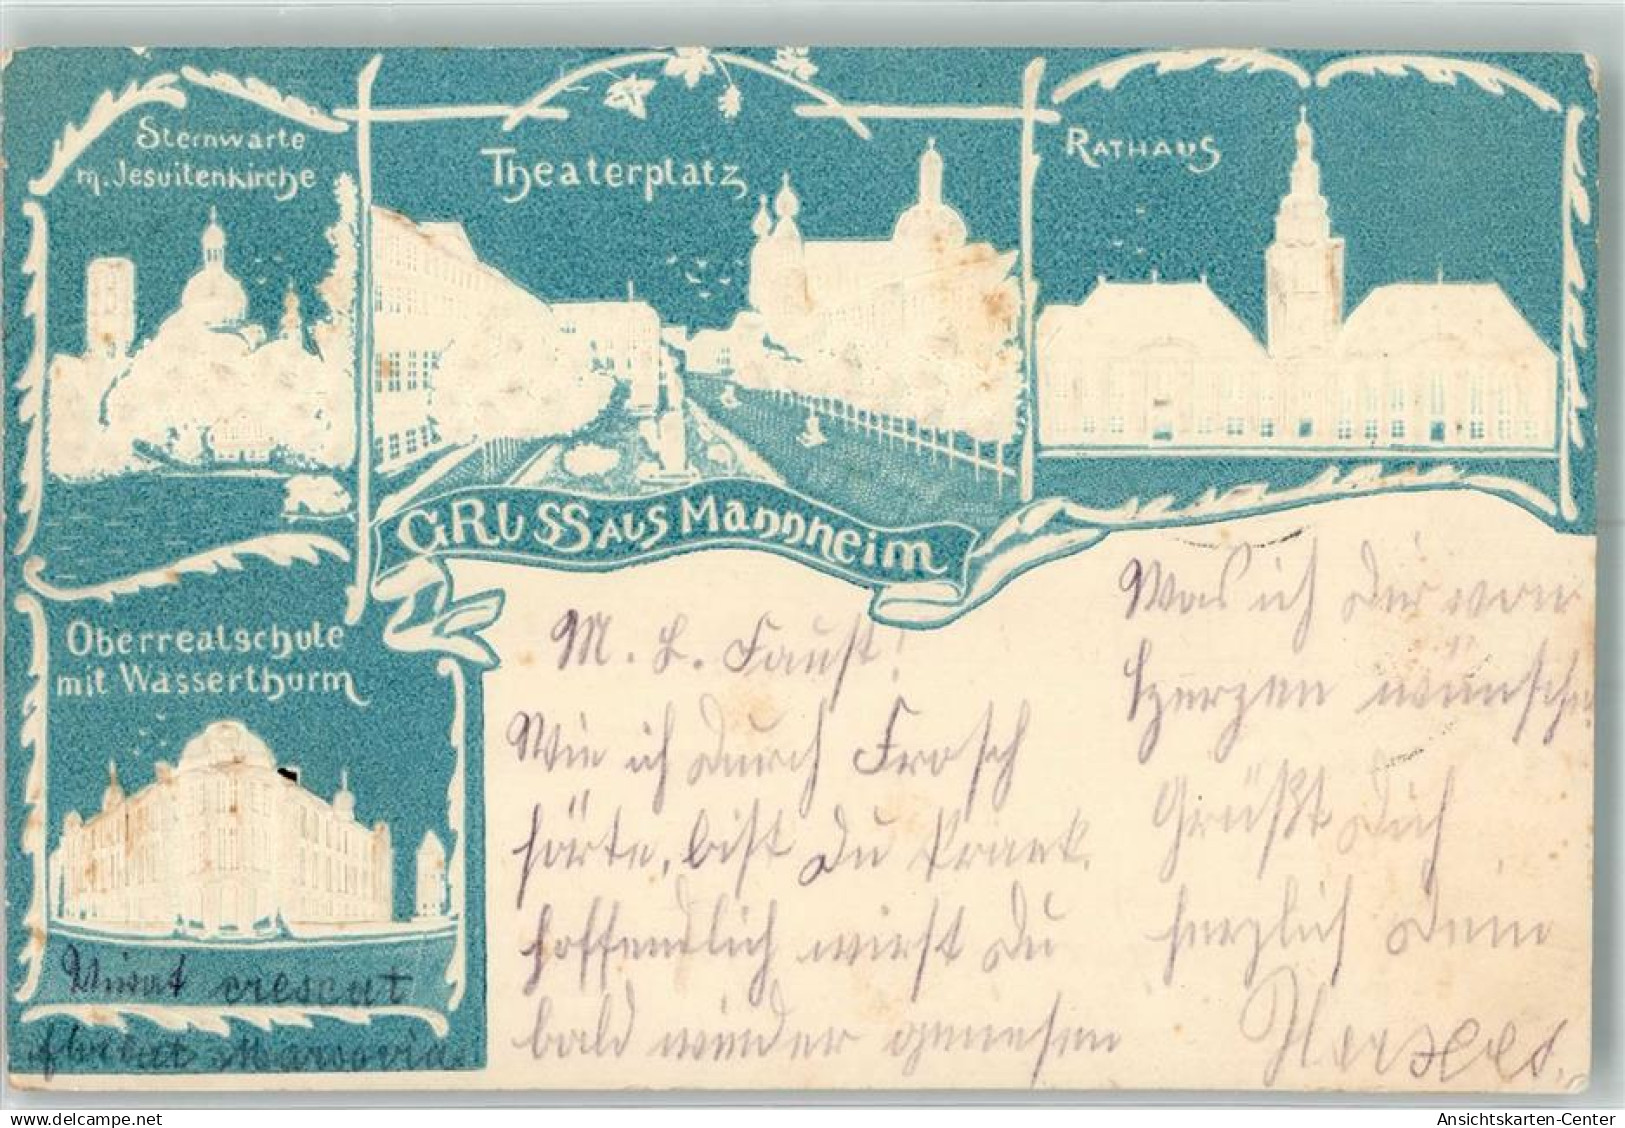 Sternwarte
m. Jesuitenkirche
Theaterplatz
Rathaus
Gruss aus Mannheim
Oberrealschule
mit Wasserthurm
M. L. Faust!
Wie ich durch Frosch
hörte, bist Du krank.
hoffendlich wirst Du
bald wieder genesen
Was ich Dir von
Herzen wünsche.
Grüßt Dich
herzlich Dein
Vivat crescat
floreat Marcovia
Ansichtskarten-Center